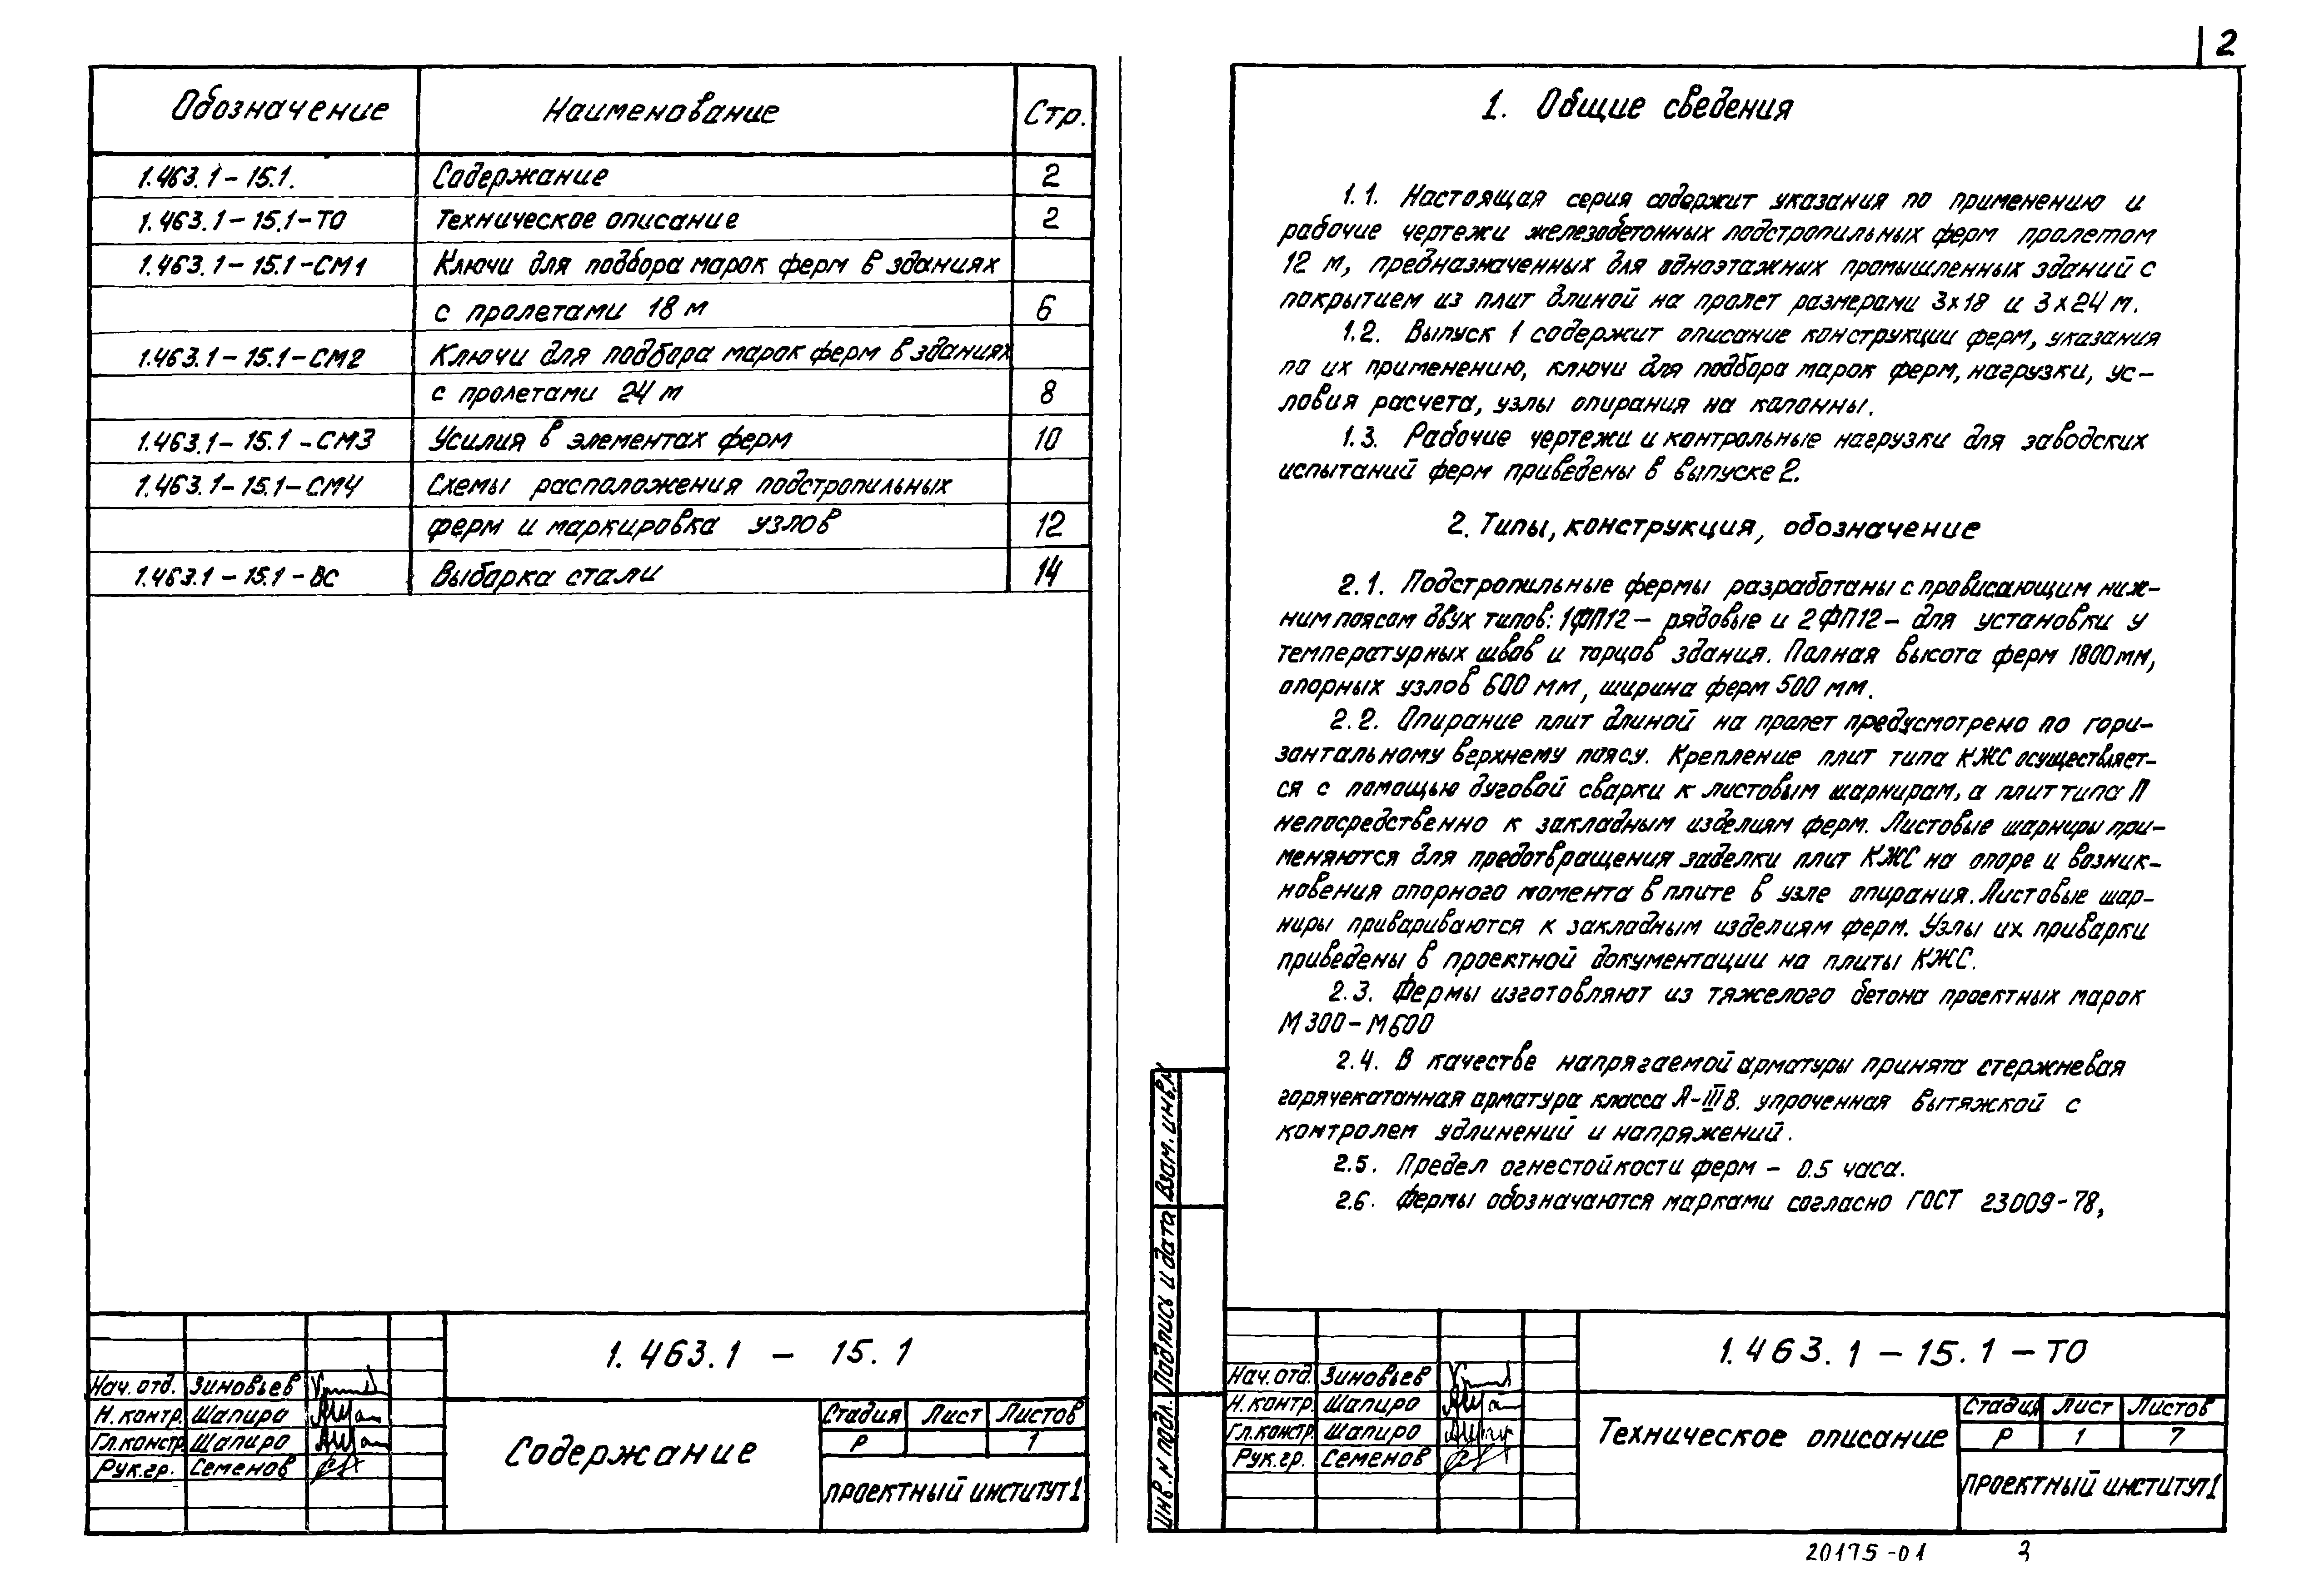 2
Обозначение Наименование Стр.
1.463.1-15.1. Содержание 2
1.463.1-15.1-ТО Техническое описание 2
1.463.1-15.1-СМ1 Ключи для подбора марок ферм в зданиях
с пролетами 18 м 6
1.463.1-15.1-СМ2 Ключи для подбора марок ферм в зданиях
с пролетами 24 м 8
1.463.1-15.1-СМ3 Усилия в элементах ферм 10
1.463.1-15.1-СМ4 Схемы расположения подстропильных
ферм и маркировка узлов 12
1.463.1-15.1-ВС Выборка стали 14
1.463.1 - 15.1
Нач. отд. Зиновьев
Н. контр. Шапиро
Гл.констр. Шапиро
Рук.гр. Семенов
Содержание
Стадия Лист Листов
Р 1
ПРОЕКТНЫЙ ИНСТИТУТ 1
1. Общие сведения
1.1. Настоящая серия содержит указания по применению и
рабочие чертежи железобетонных подстропильных ферм пролетом
12 м, предназначенных для одноэтажных промышленных зданий с
покрытием из плит длиной на пролет размерами 3х18 и 3х24 м.
1.2. Выпуск 1 содержит описание конструкции ферм, указания
по их применению, ключи для подбора марок ферм, нагрузки, ус-
ловия расчета, узлы опирания на колонны.
1.3. Рабочие чертежи и контрольные нагрузки для заводских
испытаний ферм приведены в выпуске 2.
2. Типы, конструкция, обозначение
2.1. Подстропильные фермы разработаны с провисающим ниж-
ним поясом двух типов: 1ФП12 – рядовые и 2ФП12 – для установки у
температурных швов и торцов здания. Полная высота ферм 1800мм,
опорных узлов 600 мм, ширина ферм 500 мм.
2.2. Опирание плит длиной на пролет предусмотрено по гори-
зонтальному верхнему поясу. Крепление плит типа КЖС осуществляет-
ся с помощью дуговой сварки к листовым шарнирам, а плит типа П
непосредственно к закладным изделиям ферм. Листовые шарниры при-
меняются для предотвращения заделки плит КЖС на опоре и возник-
новения опорного момента в плите в узле опирания. Листовые шар-
ниры привариваются к закладным изделиям ферм. Узлы их приварки
приведены в проектной документации на плиты КЖС.
2.3. Фермы изготовляют из тяжелого бетона проектных марок
М300-М600
2.4. В качестве напрягаемой арматуры принята стержневая
горячекатанная арматура класса А-IIIв. упроченная вытяжкой с
контролем удлинений и напряжений.
2.5. Предел огнестойкости ферм – 0.5 часа.
2.6. Фермы обозначаются марками согласно ГОСТ 23009-78,
Инв. N подл. Подпись и дата Взам. инв. N
1.463.1-15.1-ТО
Нач. отд. Зиновьев
Н. контр. Шапиро
Гл.констр. Шапиро
Рук.гр. Семенов
Техническое описание
Стадия Лист Листов
Р 1 7
ПРОЕКТНЫЙ ИНСТИТУТ 1
20175-01 3